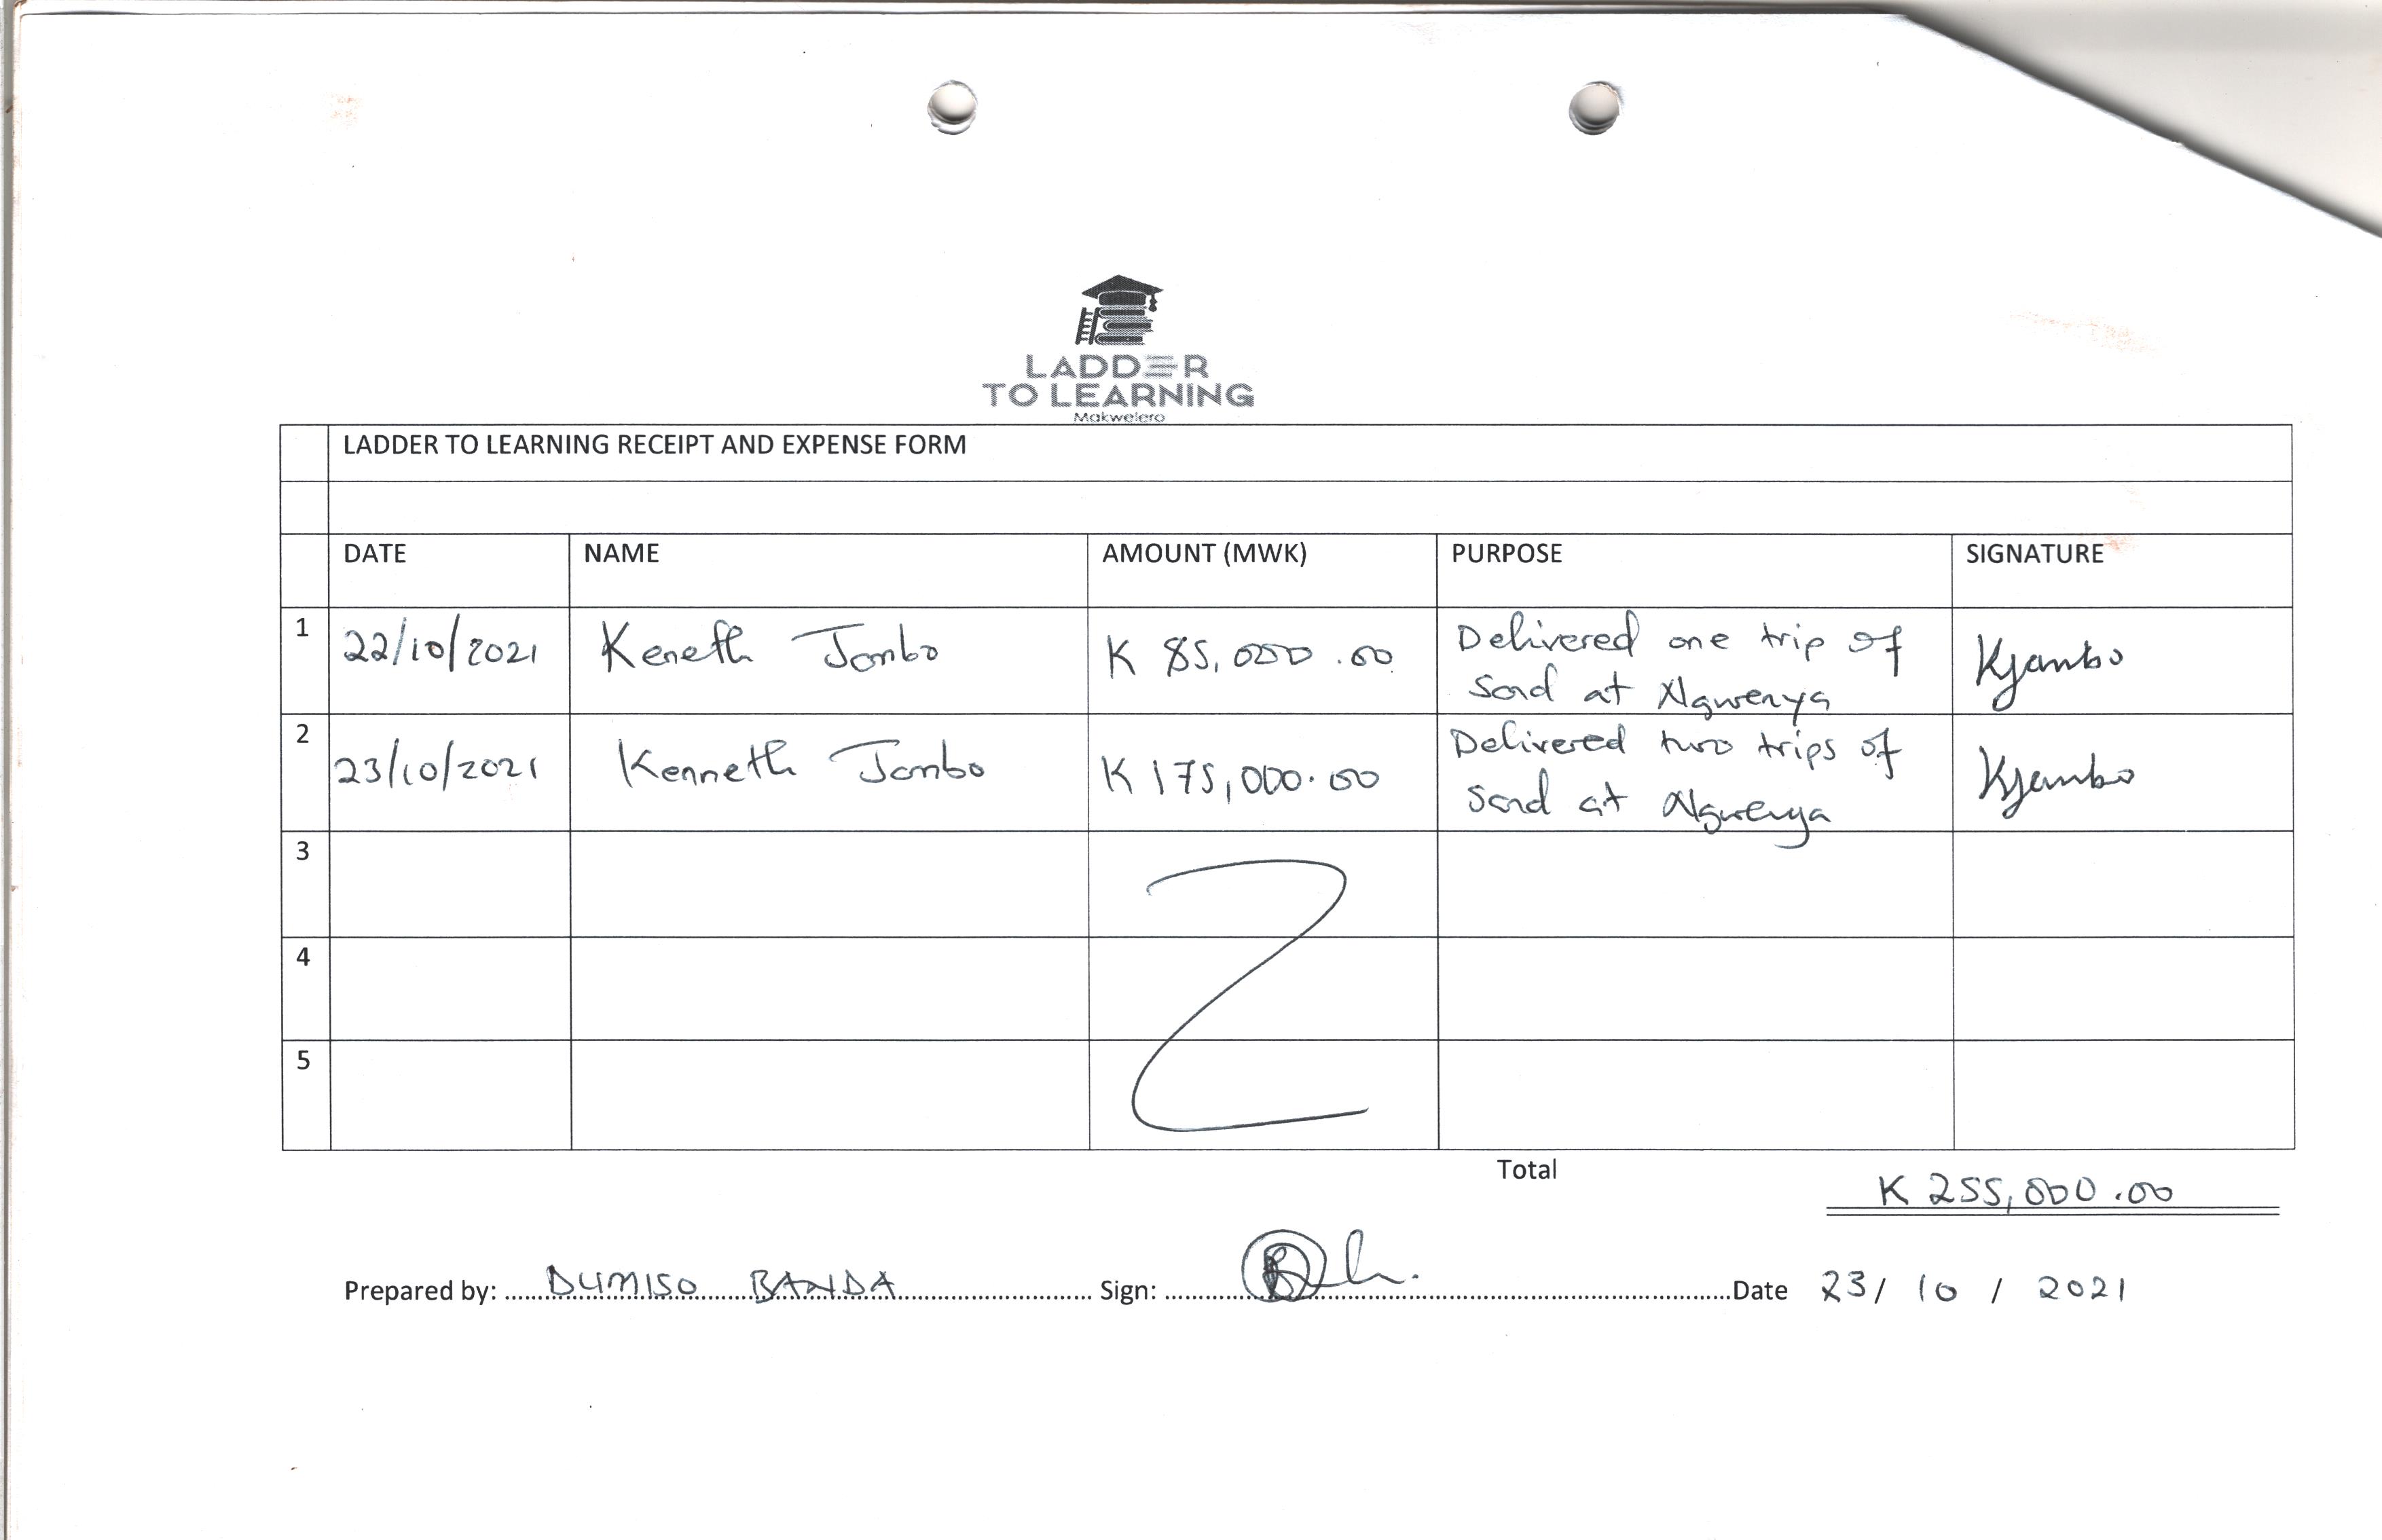 LADDER
TO LEARNING
Makwelero
LADDER TO LEARNING RECEIPT AND EXPENSE FORM
DATE NAME AMOUNT (MWK) PURPOSE SIGNATURE
1 22/10/2021 Keneth Jambo K 85,000.00 Delivered one trip of Kjambo
sand at Ngwenya
2 23/10/2021 Kenneth Jambo K 175,000.00 Delivered two trips of Kjambo
sand at Ngwenya
3
4
5
Total K 255,000.00
Prepared by: DUMISO BANDA Sign: Date 23/10/2021